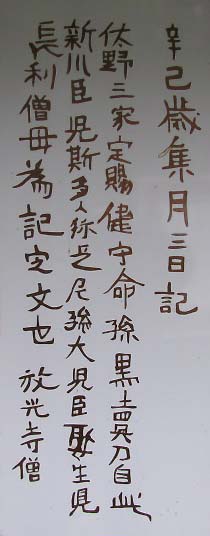 辛己歳集月三日記
佐野三家定賜健守命孫黒売刀自此
新川臣児斯多々弥足尼孫大児臣娶生児
長利僧母為記定文也 放光寺僧